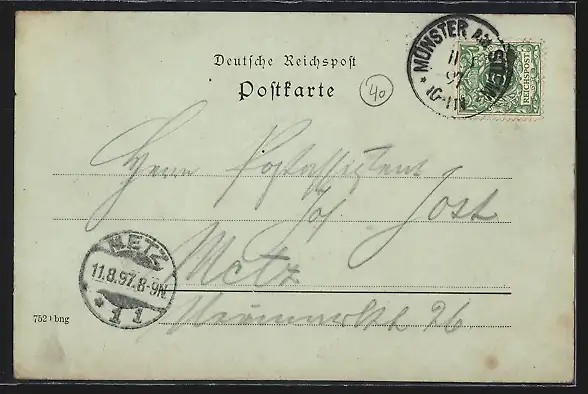 Deutsche Reichspost
Postkarte
40
MÜNSTER AM STEIN
11 8
97
10-11V
REICHSPOST
Herrn Postassistent
Jos. Jost
Metz
METZ
11.8.97. 8-9N
* 1 1
752 bng
26